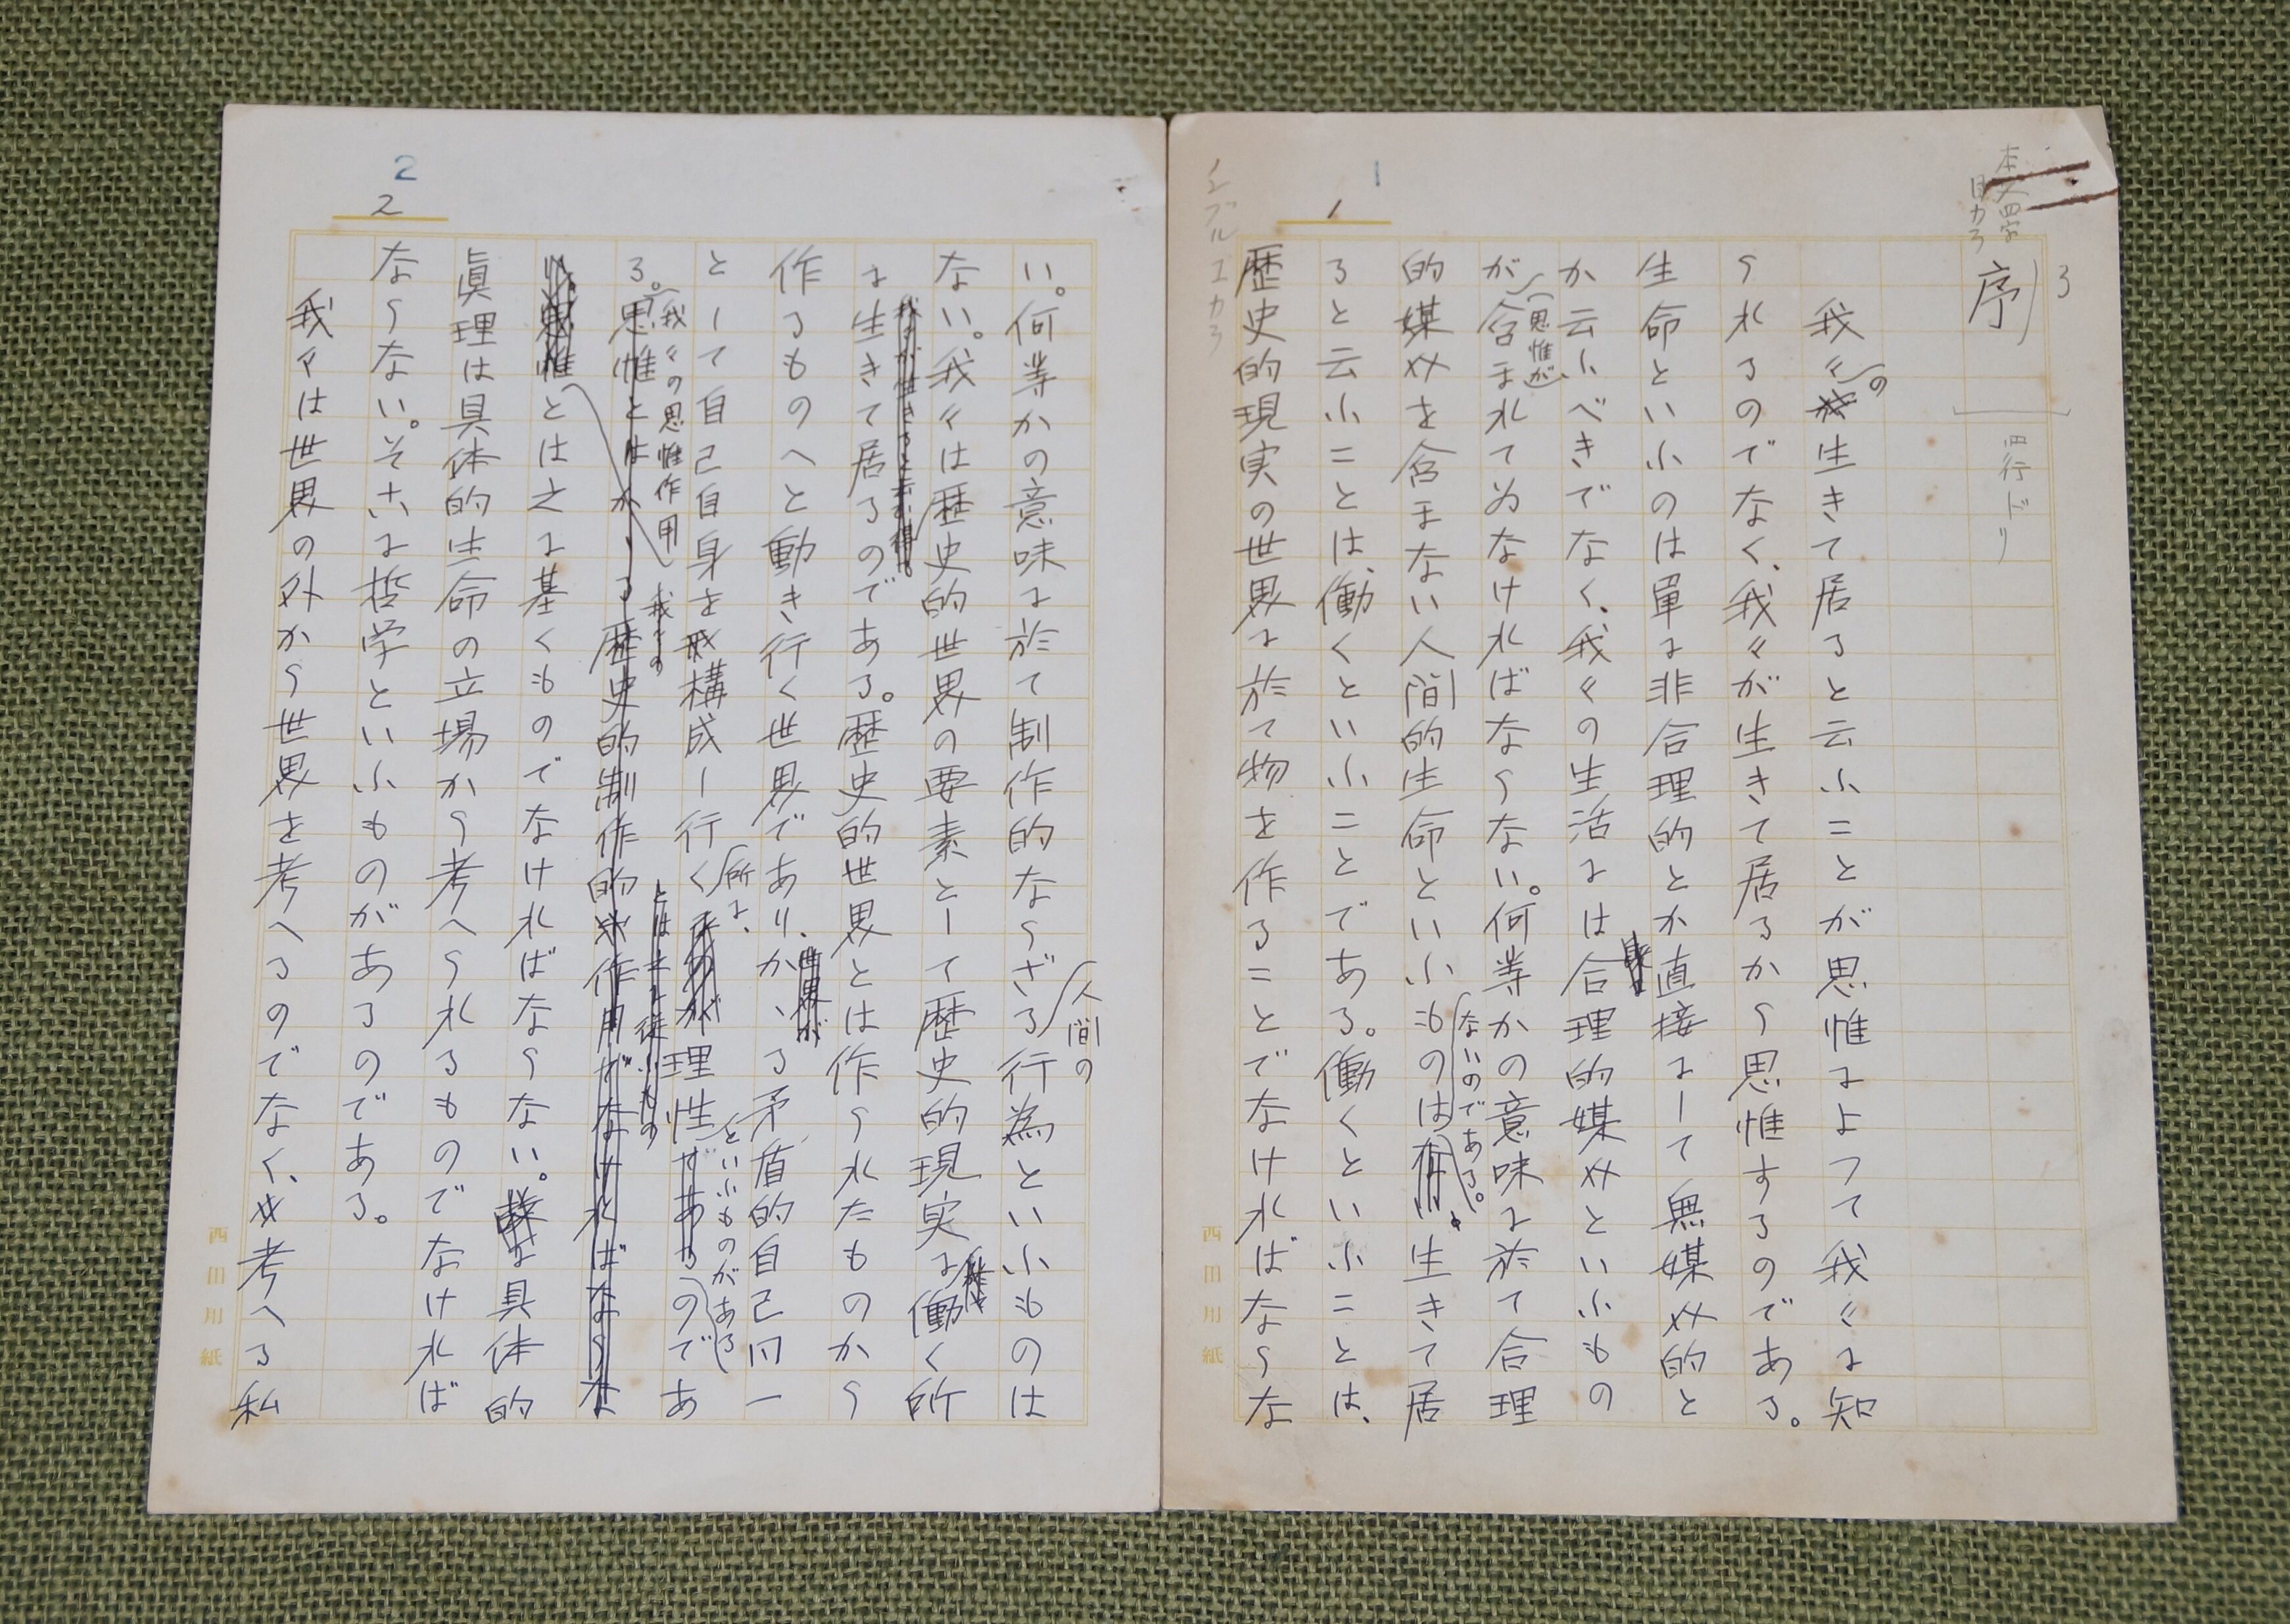 本文四字
目カラ
3
序
四行ドリ
1
1
我々の生きて居ると云ふことが思惟によつて我々に知
られるのでなく、我々が生きて居るから思惟するのである。
生命といふのは単に非合理的とか直接にして無媒介的と
か云ふべきでなく、我々の生活には合理的媒介といふもの
(思惟が)
が含まれてゐなければならない。何等かの意味に於て合理
ないのである。
的媒介を含まない人間的生命といふものは生きて居
ると云ふことは、働くといふことである。働くといふことは、
歴史的現実の世界に於て物を作ることでなければならな
ノンブル1カラ
西田用紙
2
2
人間の
い。何等かの意味に於て制作的ならざる行為といふものは
ない。我々は歴史的世界の要素として歴史的現実に働く所
我々が生きると云ふ
に生きて居るのである。歴史的世界とは作られたものから
作るものへと動き行く世界であり、かゝる矛盾的自己同一
所に、
といふものがある
として自己自身を構成し行く理性であるのであ
我々の思惟作用
我々の
る。思惟とはかゝる歴史的制作的作用でなければならな
惟とは之に基くものでなければならない。具体的
眞理は具体的生命の立場から考へられるものでなければ
ならない。そこに哲学といふものがあるのである。
我々は世界の外から世界を考へるのでなく、考へる私
西田用紙